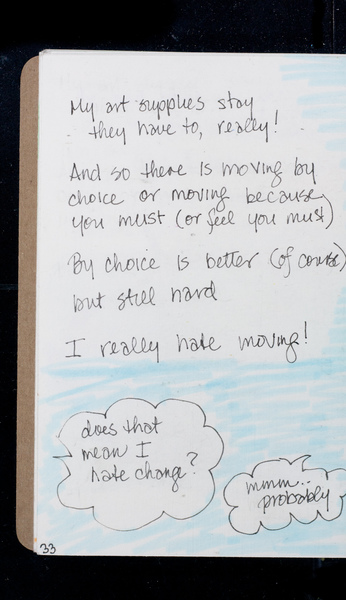 My art supplies stay
they have to, really!
And so there is moving by
choice or moving because
you must (or feel you must)
By choice is better (of course)
but still hard
I really hate moving!
does that
mean I
hate change?
mmm...
probably
33